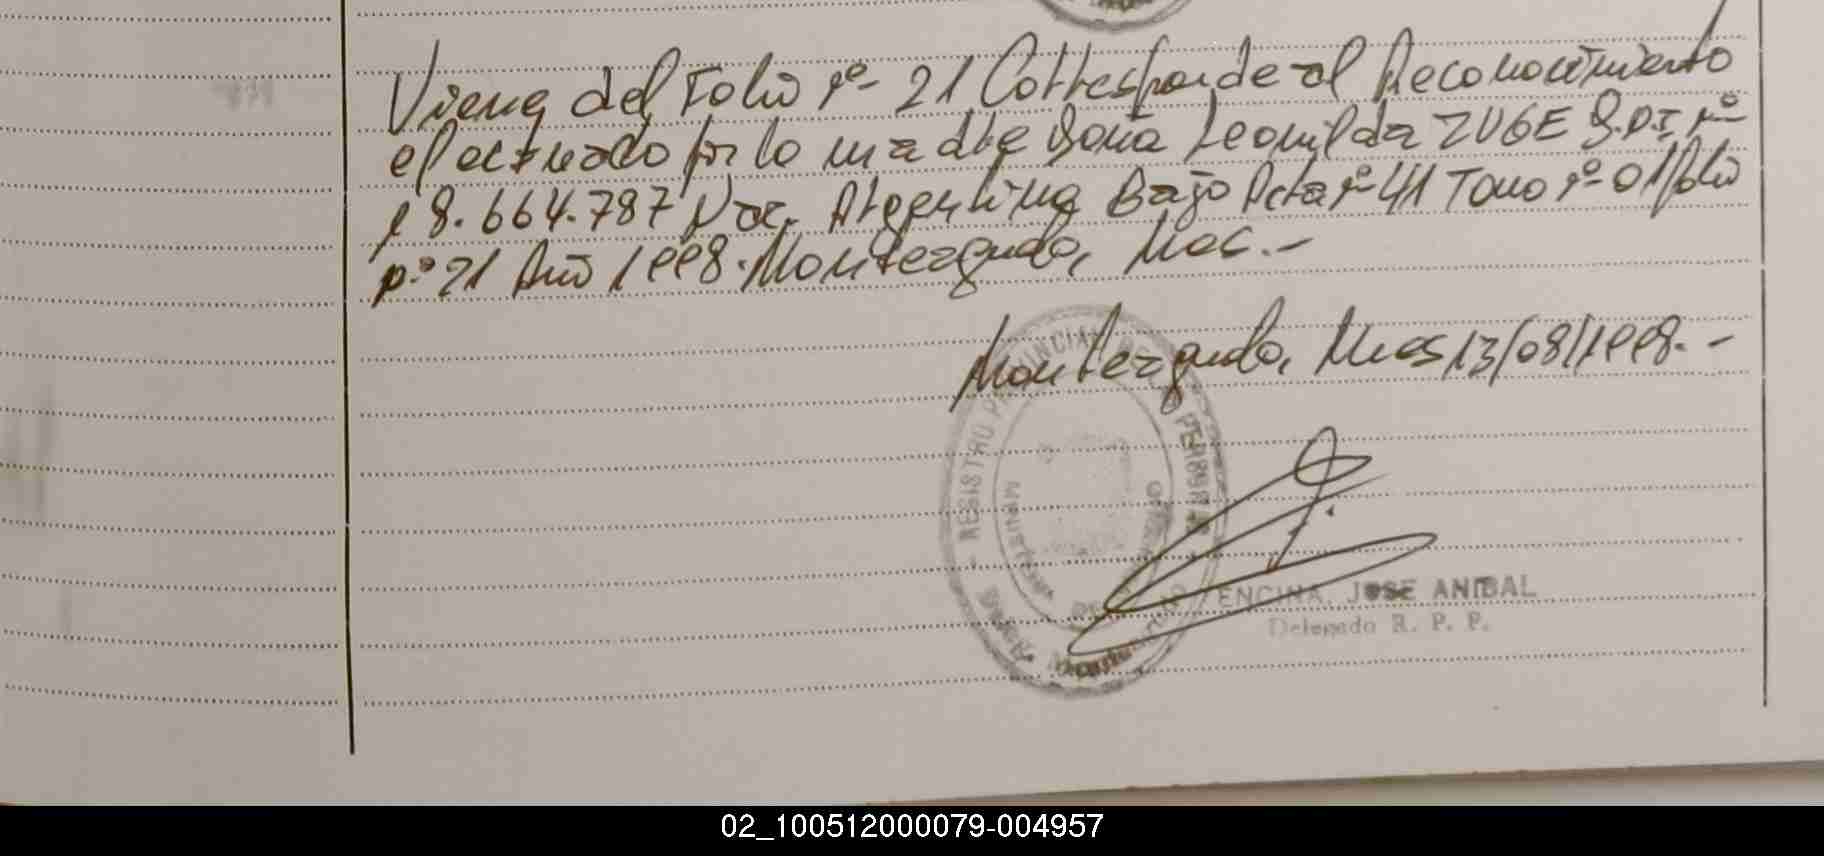 Viene del Folio nº 21 Corresponde al Reconocimiento
efectuado por la madre Doña Leonilda ZUGE D.N.I nº
18.664.787 Nac. Argentina Bajo Acta nº 41 Tomo nº 01 folio
nº 21 Año 1998. Monteagudo, Mnes.-
Monteagudo, Mnes 13/08/1998.-
REGISTRO PROVINCIAL DE LAS PERSONAS
MINISTERIO DE GOBIERNO
ENCINA, JOSE ANIBAL
Delegado R. P. P.
02_100512000079-004957